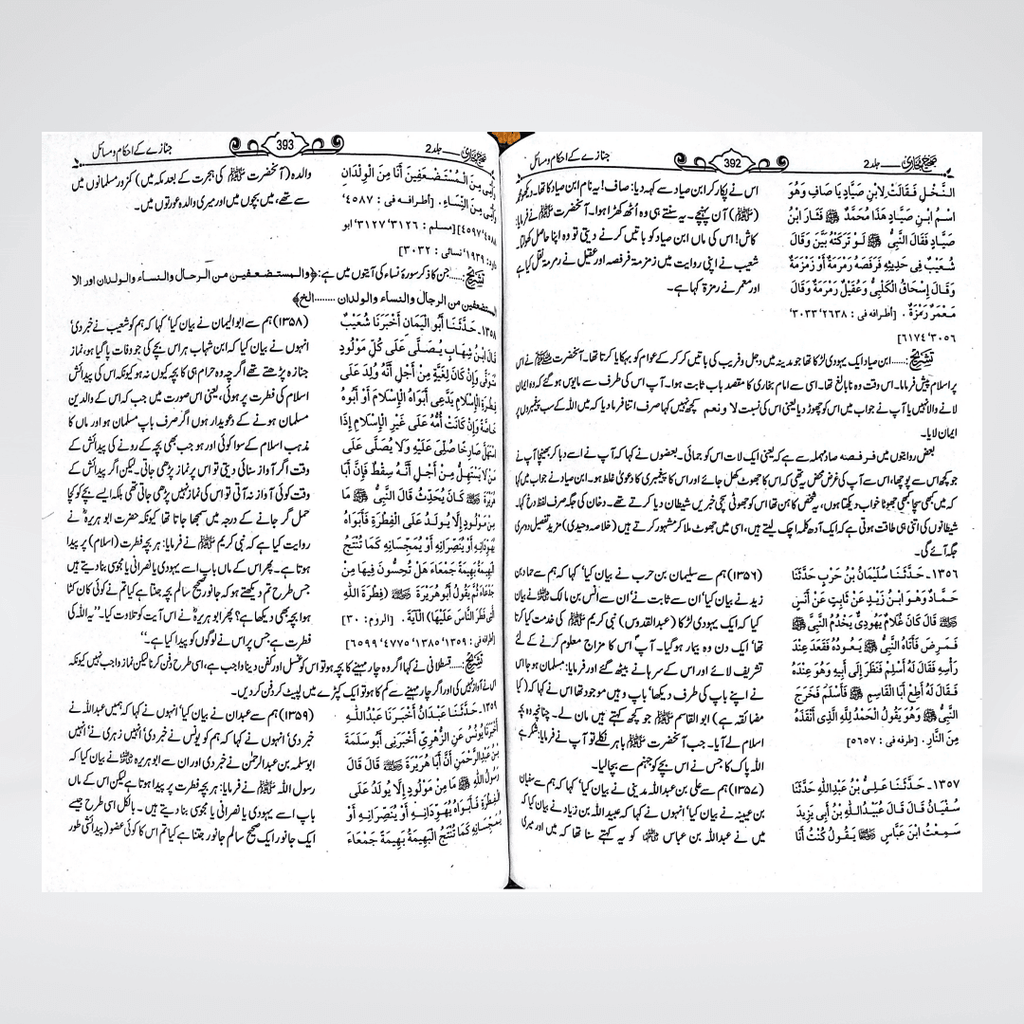 صحیح بخاری جلد 2
392
جنازے کے احکام و مسائل
النَّخْلِ فَقَالَتْ لِابْنِ صَيَّادٍ يَا صَافِ وَهُوَ
اسْمُ ابْنِ صَيَّادٍ هَذَا مُحَمَّدٌ ﷺ فَثَارَ ابْنُ
صَيَّادٍ فَقَالَ النَّبِيُّ ﷺ لَوْ تَرَكَتْهُ بَيَّنَ وَقَالَ
شُعَيْبٌ فِي حَدِيثِهِ فَرَفَصَهُ رَمْرَمَةٌ أَوْ زَمْزَمَةٌ
وَقَالَ إِسْحَاقُ الْكَلْبِيُّ وَعُقَيْلٌ رَمْرَمَةٌ وَقَالَ
مَعْمَرٌ رَمْزَةٌ. [أطرافه فی : ۲۶۳۸، ۳۰۳۳،
۳۰۵۶، ۶۱۷۴]
اس نے پکار کر ابن صیاد سے کہہ دیا: صاف! یہ نام ابن صیاد کا تھا۔ دیکھو محمد
(ﷺ) آن پہنچے۔ یہ سنتے ہی وہ اٹھ کھڑا ہوا۔ آنحضرت ﷺ نے فرمایا:
کاش! اس کی ماں ابن صیاد کو باتیں کرنے دیتی تو وہ اپنا حاصل کھولتا۔
شعیب نے اپنی روایت میں زمزمة فرفصہ اور عقیل نے رمرمة نقل کیا ہے
اور معمر نے رمزة کہا ہے۔
تشریح:...... ابن صیاد ایک یہودی لڑکا تھا جو مدینہ میں دجل و فریب کی باتیں کر کر کے عوام کو بہکایا کرتا تھا۔ آنحضرت ﷺ نے اس
پر اسلام پیش فرمایا۔ اس وقت وہ نابالغ تھا۔ اسی سے امام بخاری کا مقصد باب ثابت ہوا۔ آپ اس کی طرف سے مایوس ہو گئے کہ وہ ایمان
لانے والا نہیں یا آپ نے جواب میں اس کو چھوڑ دیا یعنی اس کی نسبت لا و نعم کچھ نہیں کہا صرف اتنا فرما دیا کہ میں اللہ کے سب پیغمبروں پر
ایمان لایا۔
بعض روایتوں میں فرفصہ صاد مہملہ سے ہے یعنی ایک لات اس کو جمائی۔ بعضوں نے کہا کہ آپ نے اسے دبا کر بھینچا آپ نے
جو کچھ اس سے پوچھا، اس سے آپ کی غرض محض یہ تھی کہ اس کا جھوٹ کھل جائے اور اس کا پیغمبری کا دعویٰ غلط ہو۔ ابن صیاد نے جواب میں کہا
کہ میں کبھی سچا کبھی جھوٹا خواب دیکھتا ہوں، یہ شخص کاہن تھا اس کو جھوٹی سچی خبریں شیطان دیا کرتے تھے۔ دخان کی جگہ صرف لفظ دخ کہا۔
شیطانوں کی اتنی ہی طاقت ہوتی ہے کہ ایک آدھ کلمہ اچک لیتے ہیں، اسی میں جھوٹ ملا کر مشہور کرتے ہیں (خلاصہ وحیدی) مزید تفصیل دوسری
جگہ آئے گی۔
۱۳۵۶۔ حَدَّثَنَا سُلَيْمَانُ بْنُ حَرْبٍ حَدَّثَنَا
حَمَّادٌ وَهُوَ ابْنُ زَيْدٍ عَنْ ثَابِتٍ عَنْ أَنَسٍ
ﷺ قَالَ كَانَ غُلَامٌ يَهُودِيٌّ يَخْدُمُ النَّبِيَّ ﷺ
فَمَرِضَ فَأَتَاهُ النَّبِيُّ ﷺ يَعُودُهُ فَقَعَدَ عِنْدَ
رَأْسِهِ فَقَالَ لَهُ أَسْلِمْ فَنَظَرَ إِلَى أَبِيهِ وَهُوَ عِنْدَهُ
فَقَالَ لَهُ أَطِعْ أَبَا الْقَاسِمِ ﷺ فَأَسْلَمَ فَخَرَجَ
النَّبِيُّ ﷺ وَهُوَ يَقُولُ الْحَمْدُ لِلَّهِ الَّذِي أَنْقَذَهُ
مِنَ النَّارِ. [طرفه فی : ۵۶۵۷]
(۱۳۵۶) ہم سے سلیمان بن حرب نے بیان کیا، کہا کہ ہم سے حماد بن
زید نے بیان کیا، ان سے ثابت نے، ان سے انس بن مالک نے بیان
کیا کہ ایک یہودی لڑکا (عبدالقدوس) نبی کریم ﷺ کی خدمت کیا کرتا
تھا، ایک دن وہ بیمار ہو گیا۔ آپ اس کا مزاج معلوم کرنے کے لئے
تشریف لائے اور اس کے سرہانے بیٹھ گئے اور فرمایا: مسلمان ہو جا اس
نے اپنے باپ کی طرف دیکھا، باپ وہیں موجود تھا اس نے کہا کہ (کیا
مضائقہ ہے) ابو القاسم ﷺ جو کچھ کہتے ہیں مان لے۔ چنانچہ وہ بچہ
اسلام لے آیا۔ جب آنحضرت ﷺ باہر نکلے تو آپ نے فرمایا: شکر ہے
اللہ پاک کا جس نے اس بچے کو جہنم سے بچا لیا۔
۱۳۵۷۔ حَدَّثَنَا عَلِيُّ بْنُ عَبْدِاللّٰهِ حَدَّثَنَا
سُفْيَانُ قَالَ قَالَ عُبَيْدُاللّٰهِ بْنُ أَبِي يَزِيدَ
سَمِعْتُ ابْنَ عَبَّاسٍ ﷺ يَقُولُ كُنْتُ أَنَا
(۱۳۵۷) ہم سے علی بن عبداللہ مدینی نے بیان کیا، کہا کہ ہم سے سفیان
بن عیینہ نے بیان کیا، انہوں نے کہا کہ عبیداللہ بن زیاد نے بیان کیا کہ
میں نے عبداللہ بن عباس کو یہ کہتے سنا تھا کہ میں اور میری
صحیح بخاری جلد 2
393
جنازے کے احکام و مسائل
وَأُمِّي مِنَ الْمُسْتَضْعَفِينَ أَنَا مِنَ الْوِلْدَانِ
وَأُمِّي مِنَ النِّسَاءِ. [أطرافه فی : ۴۵۸۷،
۴۵۸۸، ۴۵۹۷] [مسلم : ۳۱۲۶، ۳۱۲۷، ابو
داود: ۱۹۳۹، نسائی : ۳۰۳۲]
والدہ (آنحضرت ﷺ کی ہجرت کے بعد مکہ میں) کمزور مسلمانوں میں
سے تھے، میں بچوں میں اور میری والدہ عورتوں میں۔
تشریح:...... جن کا ذکر سورۂ نساء کی آیتوں میں ہے: ﴿والمستضعفین من الرجال والنساء والولدان اور الا
المستضعفین من الرجال والنساء والولدان ........ الخ﴾
۱۳۵۸۔ حَدَّثَنَا أَبُو الْيَمَانِ أَخْبَرَنَا شُعَيْبٌ
قَالَ ابْنُ شِهَابٍ يُصَلَّى عَلَى كُلِّ مَوْلُودٍ
مُتَوَفًّى وَإِنْ كَانَ لِغَيَّةٍ مِنْ أَجْلِ أَنَّهُ وُلِدَ عَلَى
فِطْرَةِ الْإِسْلَامِ يَدَّعِي أَبَوَاهُ الْإِسْلَامَ أَوْ أَبُوهُ
خَاصَّةً وَإِنْ كَانَتْ أُمُّهُ عَلَى غَيْرِ الْإِسْلَامِ إِذَا
اسْتَهَلَّ صَارِخًا صُلِّيَ عَلَيْهِ وَلَا يُصَلَّى عَلَى
مَنْ لَا يَسْتَهِلُّ مِنْ أَجْلِ أَنَّهُ سِقْطٌ فَإِنَّ أَبَا
هُرَيْرَةَ ﷺ كَانَ يُحَدِّثُ قَالَ النَّبِيُّ ﷺ مَا
مِنْ مَوْلُودٍ إِلَّا يُولَدُ عَلَى الْفِطْرَةِ فَأَبَوَاهُ
يُهَوِّدَانِهِ أَوْ يُنَصِّرَانِهِ أَوْ يُمَجِّسَانِهِ كَمَا تُنْتَجُ
الْبَهِيمَةُ بَهِيمَةً جَمْعَاءَ هَلْ تُحِسُّونَ فِيهَا مِنْ
جَدْعَاءَ ثُمَّ يَقُولُ أَبُوهُرَيْرَةَ ﷺ (فِطْرَةَ اللّٰهِ
الَّتِي فَطَرَ النَّاسَ عَلَيْهَا) الْآيَةَ. [الروم: ۳۰]
[أطرافه فی : ۱۳۵۹، ۱۳۸۵، ۴۷۷۵، ۶۵۹۹]
(۱۳۵۸) ہم سے ابو الیمان نے بیان کیا، کہا کہ ہم کو شعیب نے خبر دی،
انہوں نے بیان کیا کہ ابن شہاب ہر اس بچے کی جو وفات پا گیا ہو، نماز
جنازہ پڑھتے تھے اگرچہ وہ حرام ہی کا بچہ کیوں نہ ہو کیونکہ اس کی پیدائش
اسلام کی فطرت پر ہوئی، یعنی اس صورت میں جب کہ اس کے والدین
مسلمان ہونے کے دعویدار ہوں اگر صرف باپ مسلمان ہو اور ماں کا
مذہب اسلام کے سوا کوئی اور ہو جب بھی بچے کے رونے کی پیدائش کے
وقت اگر آواز سنائی دیتی تو اس پر نماز پڑھی جاتی۔ لیکن اگر پیدائش کے
وقت کوئی آواز نہ آتی تو اس کی نماز نہیں پڑھی جاتی تھی بلکہ ایسے بچے کو کچا
حمل گر جانے کے درجہ میں سمجھا جاتا تھا کیونکہ حضرت ابو ہریرہ نے
روایت کیا ہے کہ نبی کریم ﷺ نے فرمایا: ہر بچہ فطرت (اسلام) پر پیدا
ہوتا ہے۔ پھر اس کے ماں باپ اسے یہودی یا نصرانی یا مجوسی بنا دیتے ہیں
جس طرح تم دیکھتے ہو کہ جانور صحیح سالم بچہ جنتا ہے کیا تم نے کوئی کان کٹا
ہوا بچہ بھی دیکھا ہے؟ پھر ابو ہریرہ نے اس آیت کو تلاوت کیا۔ ”یہ اللہ کی
فطرت ہے جس پر اس نے لوگوں کو پیدا کیا ہے۔“
تشریح:...... قسطلانی نے کہا اگر وہ چار مہینے کا بچہ ہو تو اس کو غسل اور کفن دینا واجب ہے، اسی طرح دفن کرنا لیکن نماز واجب نہیں کیونکہ
اس نے آواز نہیں کی اور اگر چار مہینے سے کم کا ہو تو ایک کپڑے میں لپیٹ کر دفن کر دیں۔
۱۳۵۹۔ حَدَّثَنَا عَبْدَانُ أَخْبَرَنَا عَبْدُاللّٰهِ
أَخْبَرَنَا يُونُسُ عَنِ الزُّهْرِيِّ أَخْبَرَنِي أَبُو سَلَمَةَ
بْنُ عَبْدِالرَّحْمٰنِ أَنَّ أَبَا هُرَيْرَةَ ﷺ قَالَ قَالَ
رَسُولُ اللّٰهِ ﷺ مَا مِنْ مَوْلُودٍ إِلَّا يُولَدُ عَلَى
الْفِطْرَةِ فَأَبَوَاهُ يُهَوِّدَانِهِ أَوْ يُنَصِّرَانِهِ أَوْ
يُمَجِّسَانِهِ كَمَا تُنْتَجُ الْبَهِيمَةُ بَهِيمَةً جَمْعَاءَ
(۱۳۵۹) ہم سے عبدان نے بیان کیا، انہوں نے کہا کہ ہمیں عبداللہ نے
خبر دی، انہوں نے کہا کہ ہم کو یونس نے خبر دی، انہیں زہری نے، انہیں
ابو سلمہ بن عبدالرحمٰن نے خبر دی اور ان سے ابو ہریرہ نے بیان کیا کہ
رسول اللہ ﷺ نے فرمایا: ہر بچہ فطرت پر پیدا ہوتا ہے لیکن اس کے ماں
باپ اسے یہودی یا نصرانی یا مجوسی بنا دیتے ہیں۔ بالکل اسی طرح جیسے
ایک جانور ایک صحیح سالم جانور جنتا ہے کیا تم اس کا کوئی عضو (پیدائشی طور